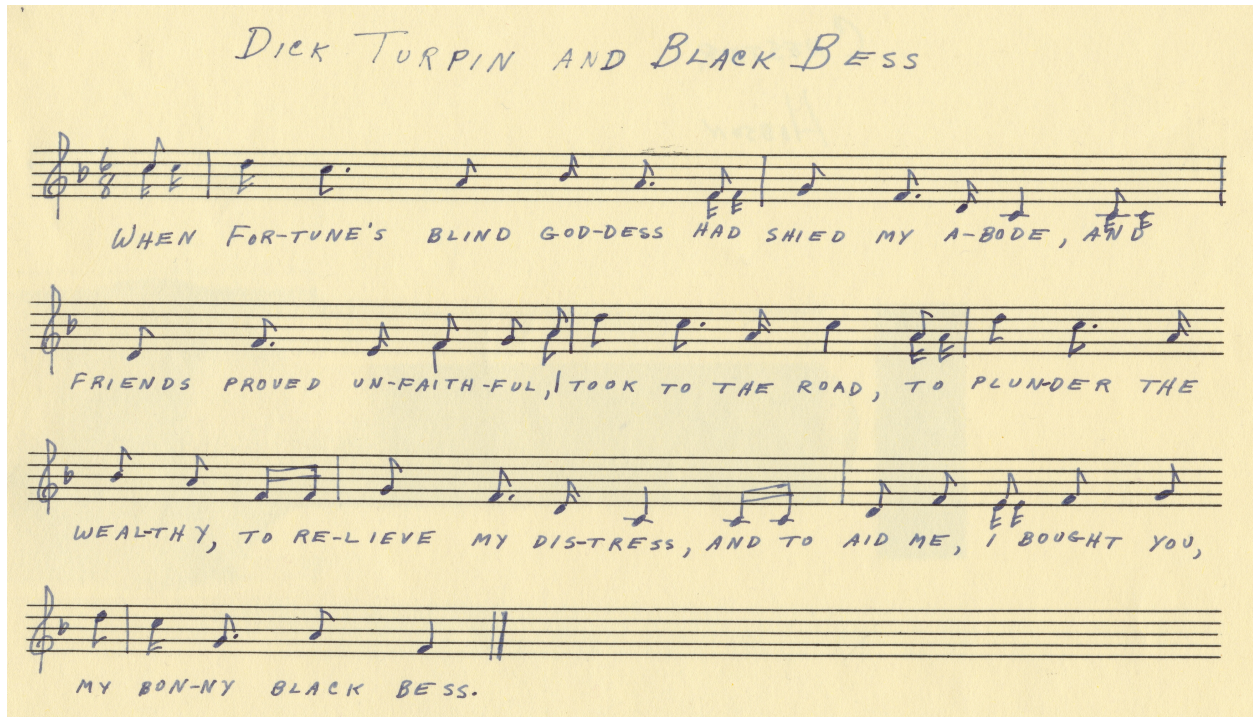 DICK TURPIN AND BLACK BESS
6 8
WHEN FOR-TUNE'S BLIND GOD-DESS HAD SHIED MY A-BODE, AND
FRIENDS PROVED UN-FAITH-FUL, I TOOK TO THE ROAD, TO PLUN-DER THE
WEAL-THY, TO RE-LIEVE MY DIS-TRESS, AND TO AID ME, I BOUGHT YOU,
MY BON-NY BLACK BESS.